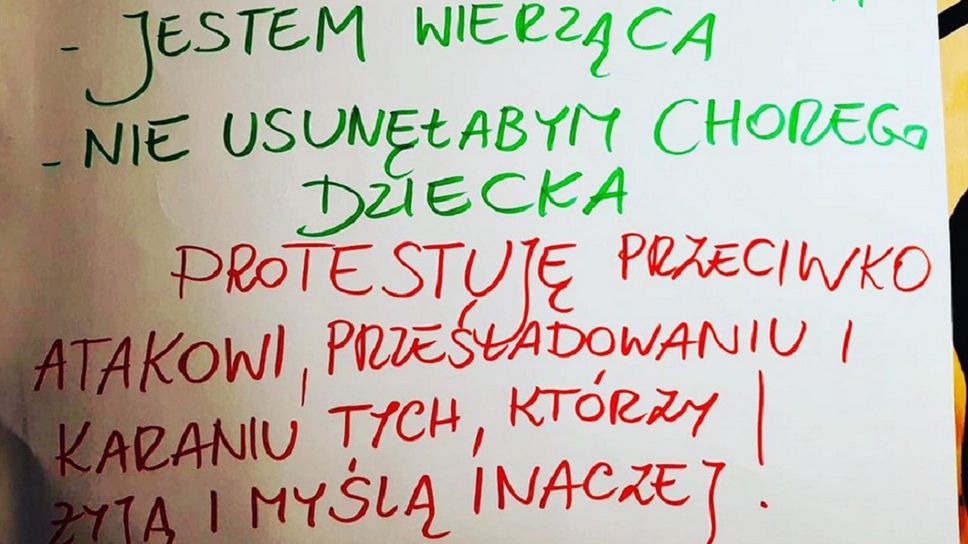 - JESTEM WIERZĄCA
- NIE USUNĘŁABYM CHOREGO
DZIECKA
PROTESTUJĘ PRZECIWKO
ATAKOWI, PRZEŚŁADOWANIU I
KARANIU TYCH, KTÓRZY
ŻYJĄ I MYŚLĄ INACZEJ.